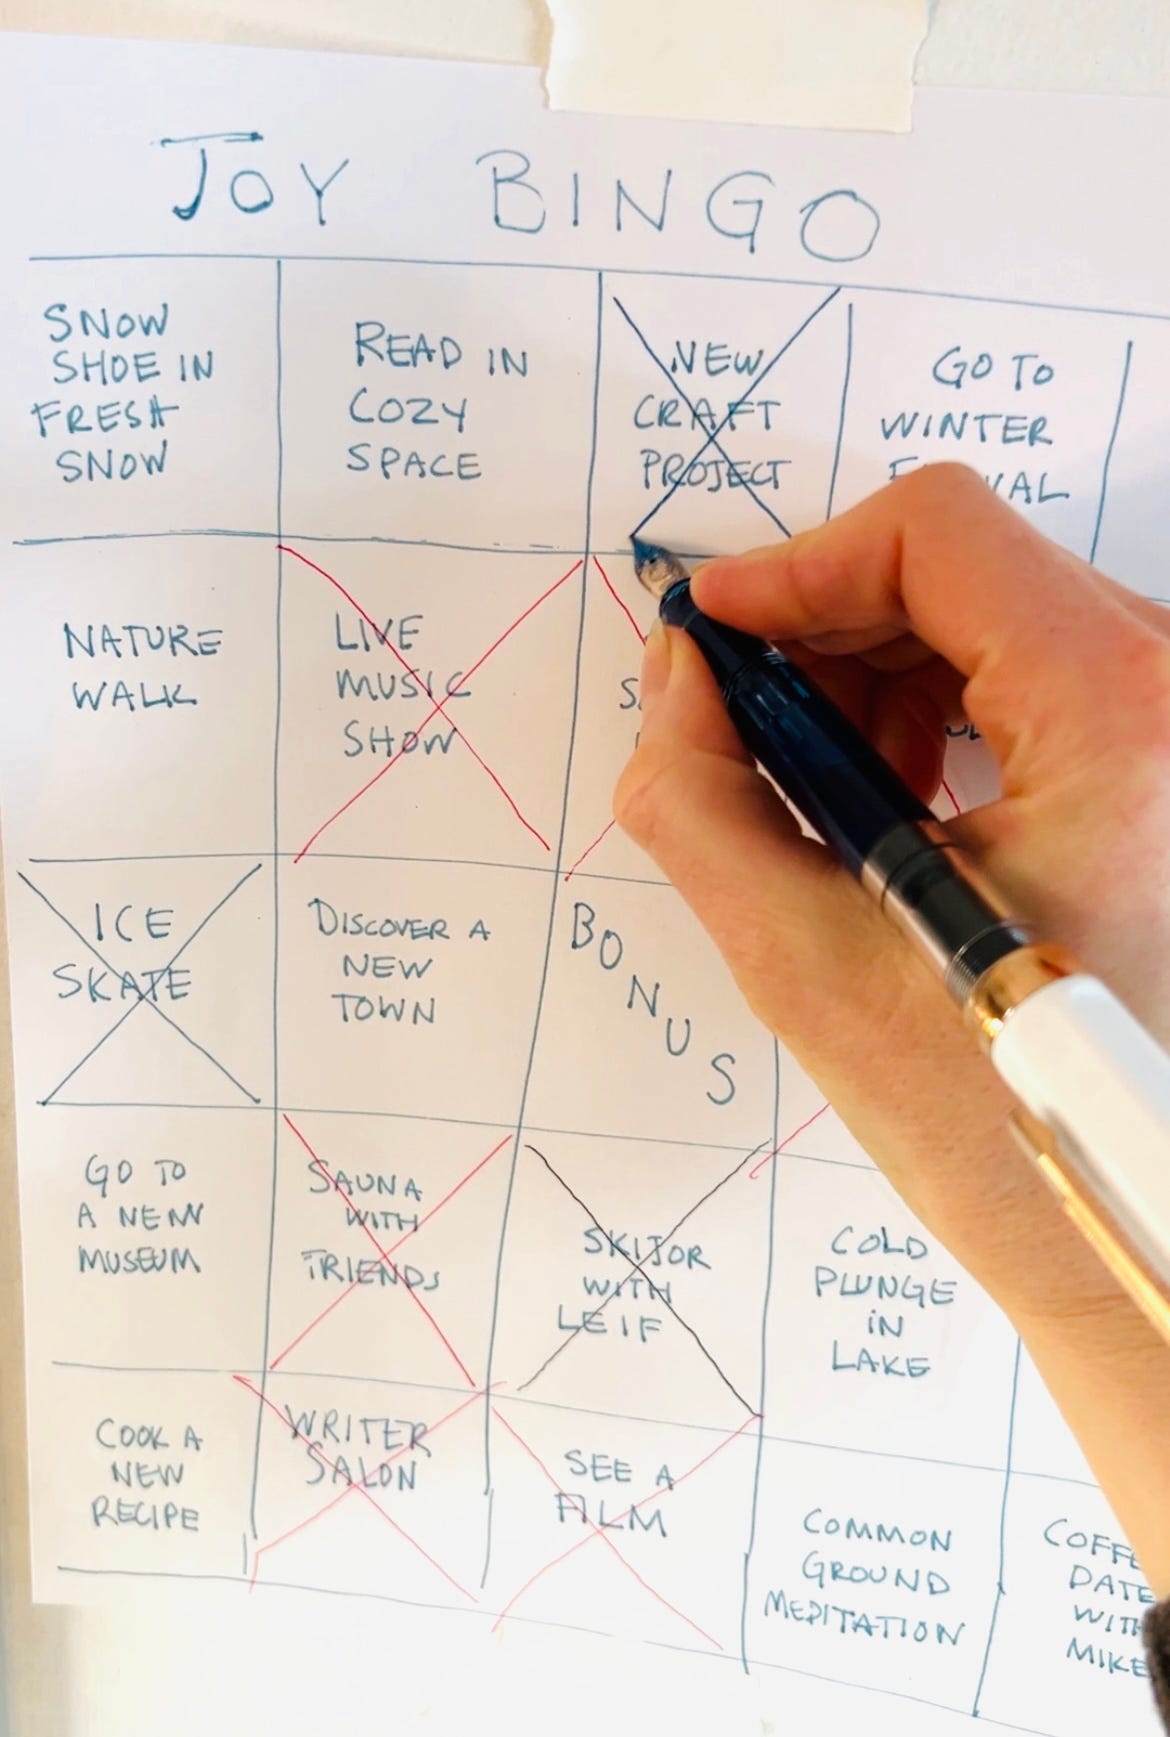 JOY BINGO
SNOW
SHOE IN
FRESH
SNOW
READ IN
COZY
SPACE
NEW
CRAFT
PROJECT
GO TO
WINTER
NATURE
WALK
LIVE
MUSIC
SHOW
ICE
SKATE
DISCOVER A
NEW
TOWN
BONUS
GO TO
A NEW
MUSEUM
SAUNA
WITH
FRIENDS
SKIJOR
WITH
LEIF
COLD
PLUNGE
IN
LAKE
COOK A
NEW
RECIPE
WRITER
SALON
SEE A
FILM
COMMON
GROUND
MEDITATION
DATE
WITH
MIKE